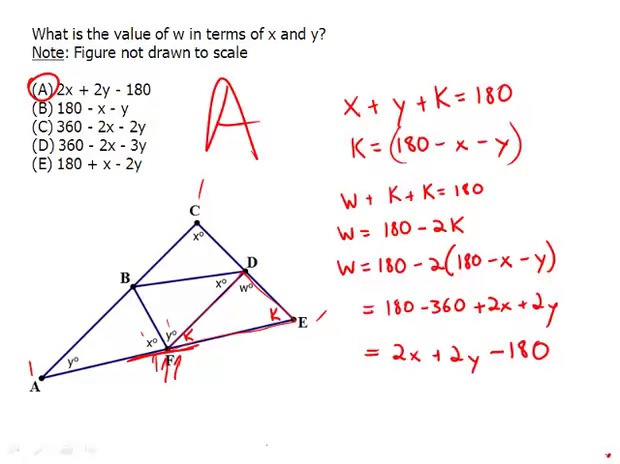 What is the value of w in terms of x and y?
Note: Figure not drawn to scale
(A) 2x + 2y - 180
(B) 180 - x - y
(C) 360 - 2x - 2y
(D) 360 - 2x - 3y
(E) 180 + x - 2y
A
x + y + K = 180
K = (180 - x - y)
W + K + K = 180
W = 180 - 2K
W = 180 - 2(180 - x - y)
= 180 - 360 + 2x + 2y
= 2x + 2y - 180
C
xº
D
B
xº
wº
K
E
yº
xº
K
F
yº
A